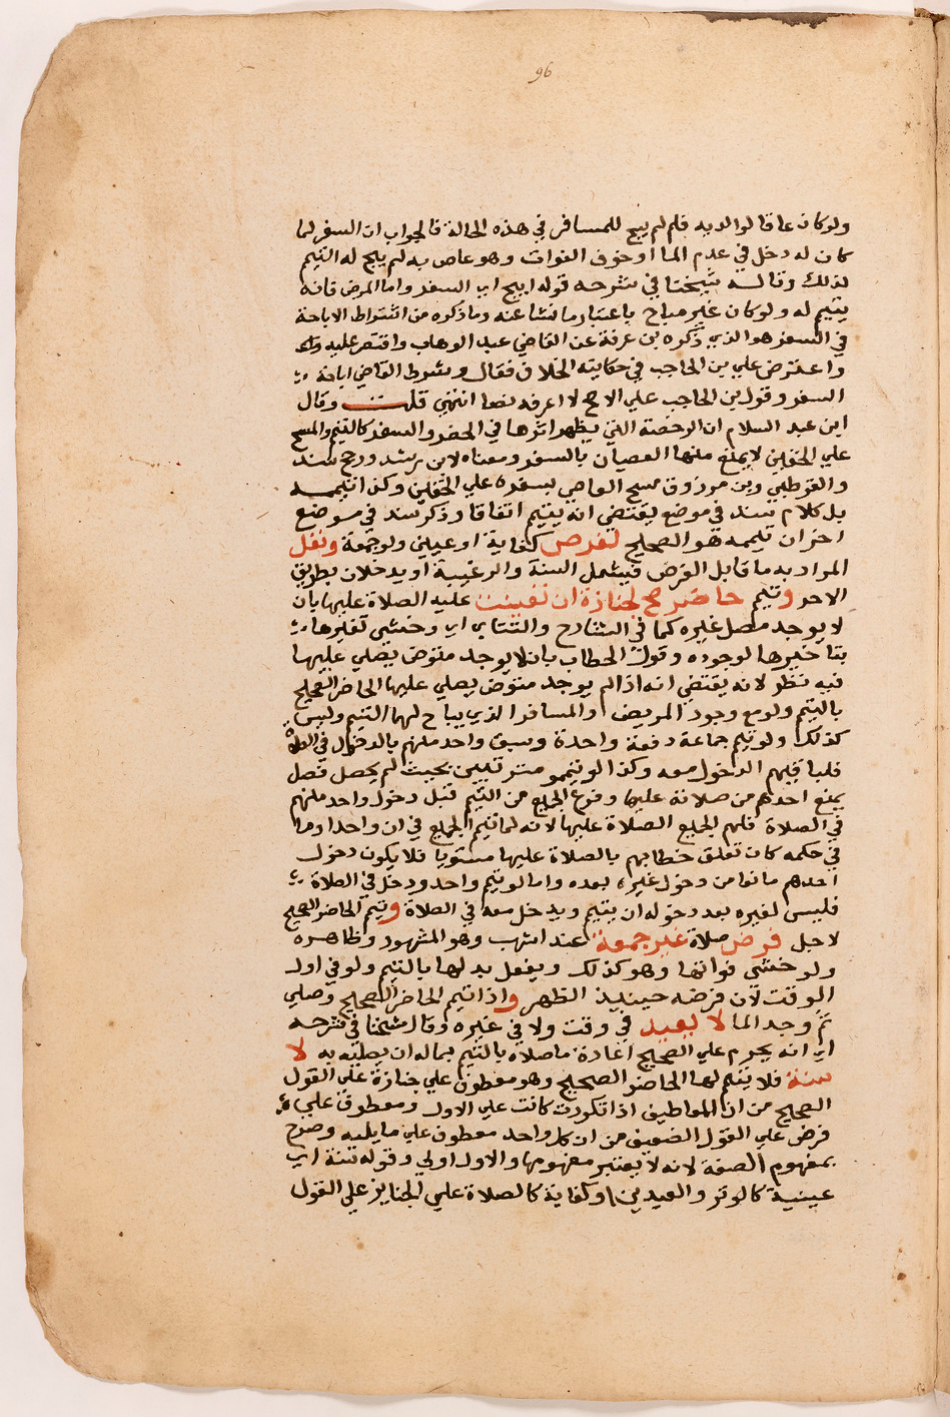 96
ولو كان عاقا لوالديه فلم لم يبح للمسافر في هذه الحالة فالجواب ان السفر لما
كان له دخل في عدم الما او خوف الفوات وهو عاص به لم يبح له التيمم
لذلك وقال شيخنا في شرحه قوله ابيح اي السفر واما المرض فانه
يتيمم له ولو كان غير مباح باعتبار ما نشا عنه وما ذكره من اشتراط الاباحة
في السفر هو الذي ذكره بن عرفة عن القاضي عبد الوهاب واقتصر عليه
واعترض علي بن الحاجب في حكايته الخلاف فقال وشرط القاضي اباحة
السفر وقول بن الحاجب علي الاصح لا اعرفه نصا انتهي قلت وقال
ابن عبد السلام ان الرخصة التي يظهر اثرها في الحضر والسفر كالتيمم والمسح
علي الخفين لا يمنع منها العصيان بالسفر ومعناه لابن رشد ورجح سند
والقرطبي وبن مرزوق مسح العاصي بسفره علي الخفين وكذا تيممه
بل كلام سند في موضع يقتضي انه يتيمم اتفاقا وذكر سند في موضع
اخر ان تيممه هو الصحيح لفرض كفاية او عيني ولو جمعة ونفل
المراد به ما قابل الفرض فيشمل السنة والرغيبة او يدخلان بطريق
الاحر وتيمم حاضر صح لجنازة ان تعينت عليه الصلاة عليها بان
لا يوجد مصل غيره كما في الشارح والتتاي اي وخشي تغيرها
بتاخيرها لوجوده وقول الحطاب بان لا يوجد متوض يصلي عليها
فيه نظر لانه يقتضي انه اذا لم يوجد متوض يصلي عليها الحاضر الصحيح
بالتيمم ولو مع وجود المريض او المسافر الذي يباح لهما التيمم وليس
كذلك ولو تيمم جماعة دفعة واحدة وسبق واحد منهم بالدخول في الصلاة
فلباقيهم الدخول معه وكذا لو تيمموا مترتبين بحيث لم يحصل فصل
يمنع احدهم من صلاته عليها وفرغ الجميع من التيمم قبل دخول واحد منهم
في الصلاة فلهم الجميع الصلاة عليها لانه لما تيمم الجميع في ان واحد او ما
في حكمه كان تعلق خطابهم بالصلاة عليها مستويا فلا يكون دخول
احدهم مانعا من دخول غيره بعده واما لو تيمم واحد ودخل في الصلاة
فليس لغيره بعد دخوله ان يتيمم ويدخل معه في الصلاة وتيمم الحاضر الصحيح
لاجل فرض صلاة غير جمعة عند اشهب وهو المشهور وظاهره
ولو خشي فواتها وهو كذلك ويفعل بدلها بالتيمم ولو في اول
الوقت لان فرضه حينيذ الظهر واذا تيمم الحاضر الصحيح وصلي
ثم وجد الما لا يعيد في وقت ولا في غيره وقال شيخنا في شرحه
اي انه يحرم علي الصحيح اعادة ما صلاه بالتيمم بماله ان يصليه به لا
سنة فلا يتيمم لها الحاضر الصحيح وهو معطوف علي جنازة علي القول
الصحيح من ان المعاطيف اذا تكررت كانت علي الاول ومعطوف علي
فرض علي القول الضعيف من ان كل واحد معطوف علي ما يليه وصرح
بمفهوم الصفة لانه لا يعتبر مفهومها والاول اولي وقوله سنة اي
عينية كالوتر والعيدين او كفاية كالصلاة علي الجنايز علي القول